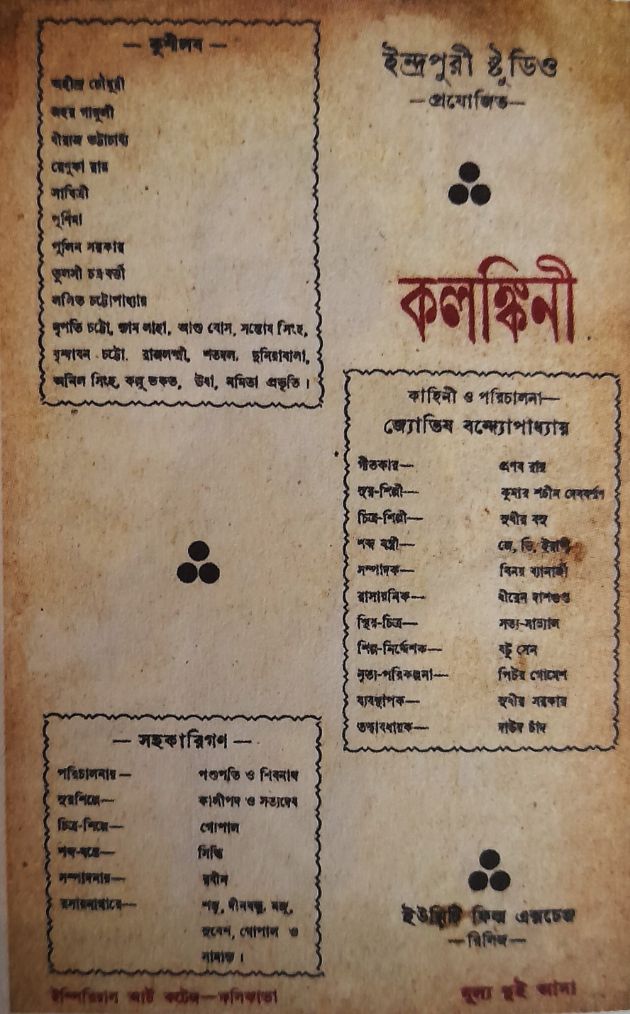 — কুশীলব —
অহীন্দ্র চৌধুরী
জহর গাঙ্গুলী
ধীরাজ ভট্টাচার্য্য
রেণুকা রায়
সাবিত্রী
পূর্ণিমা
পুলিন সরকার
তুলসী চক্রবর্ত্তী
ললিত চট্টোপাধ্যায়
নৃপতি চট্টো, শ্যাম লাহা, আশু বোস, সন্তোষ সিংহ,
বৃন্দাবন চট্টো, রাজলক্ষ্মী, শতদল, দুনিয়াবালা,
অনিল সিংহ, কালু ভকত, উষা, নমিতা প্রভৃতি।
— সহকারিগণ —
পরিচালনায়— পশুপতি ও শিবনাথ
সুরশিল্পে— কালীপদ ও সত্যদেব
চিত্র-শিল্পে— গোপাল
শব্দ-যন্ত্রে— সিদ্ধি
সম্পাদনায়— রবীন
রসায়নাগারে— শম্ভু, দীনবন্ধু, মজু,
সুরেশ, গোপাল ও
সামান্ত।
ইম্পিরিয়াল আর্ট কটেজ—কলিকাতা
ইন্দ্রপুরী ষ্টুডিও
—প্রযোজিত—
কলঙ্কিনী
কাহিনী ও পরিচালনা—
জ্যোতিষ বন্দ্যোপাধ্যায়
গীতকার— প্রণব রায়
সুর-শিল্পী— কুমার শচীন দেববর্ম্মণ
চিত্র-শিল্পী— সুধীর বসু
শব্দ যন্ত্রী— জে, ডি, ইরাণী
সম্পাদক— বিনয় ব্যানার্জী
রাসায়নিক— ধীরেন দাশগুপ্ত
স্থির-চিত্র— সত্য-সান্যাল
শিল্প-নির্দ্দেশক— বটু সেন
নৃত্য-পরিকল্পনা— পিটার গোমেশ
ব্যবস্থাপক— সুধীর সরকার
তত্ত্বাবধায়ক— দাউদ চাঁদ
ইউনিটি ফিল্ম এক্সচেঞ্জ
—রিলিজ—
মূল্য দুই আনা